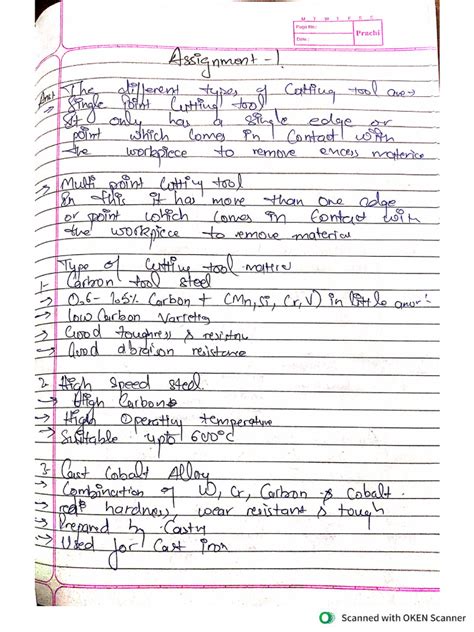 M T W T F S S
Page No.:
Date:
Prachi
Assignment - 1.
The different types of Cutting tool are →
→ Single Point Cutting tool
It only has a single edge or
point which comes in Contact with
the workpiece to remove excess materice
→ Multi point Cutting tool
In this it has more than one edge
or point which comes in Contact with
the workpiece to remove material
Type of Cutting tool
1- Carbon tool steel
→ 0.6 - 1.5% Carbon + (Mn, Si, Cr, V) in little
→ Low Carbon
→ Good toughness &
→ Good abrasion resistance
2. High Speed Steel.
→ High Carbon
→ High Operating temperature
→ Suitable upto 600°C
3- Cast Cobalt Alloy
→ Combination of W, Cr, Carbon & Cobalt.
→ hardness, wear resistant & tough
→ Prepared by Casting
→ Used for Cast iron
Scanned with OKEN Scanner